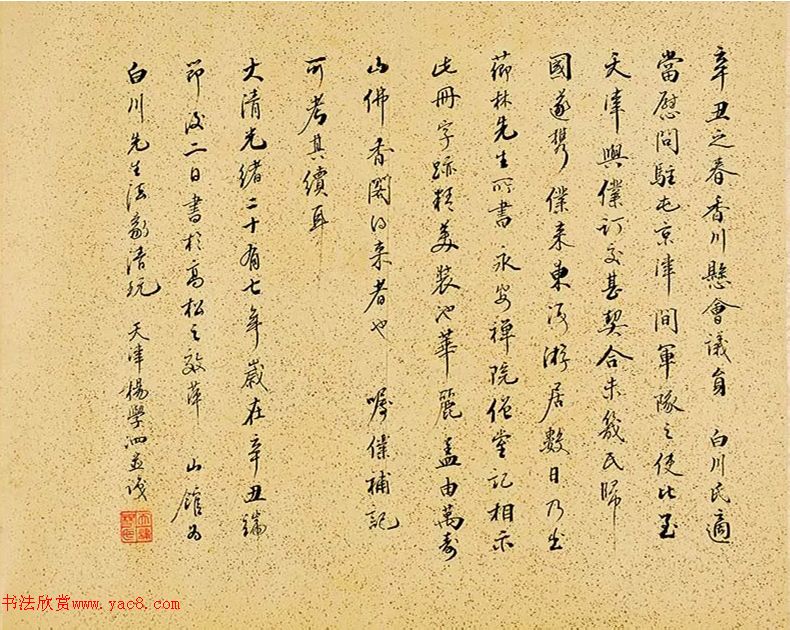 辛丑之春香川縣會議員 白川氏適
當慰問駐屯京津間軍隊之使比至
天津與僕訂交甚契合未幾氏歸
國遂攜僕來東後游居數日乃出
薌林先生所書永安禪院僧堂記相示
此冊字跡精美裝池華麗蓋由萬壽
山佛香閣得來者也 囑僕補記
可考其續耳
大清光緒二十有七年歲在辛丑端
節後二日書於高松之 山館為
白川先生法家清玩 天津楊學泗並識
书法欣赏www.yac8.com